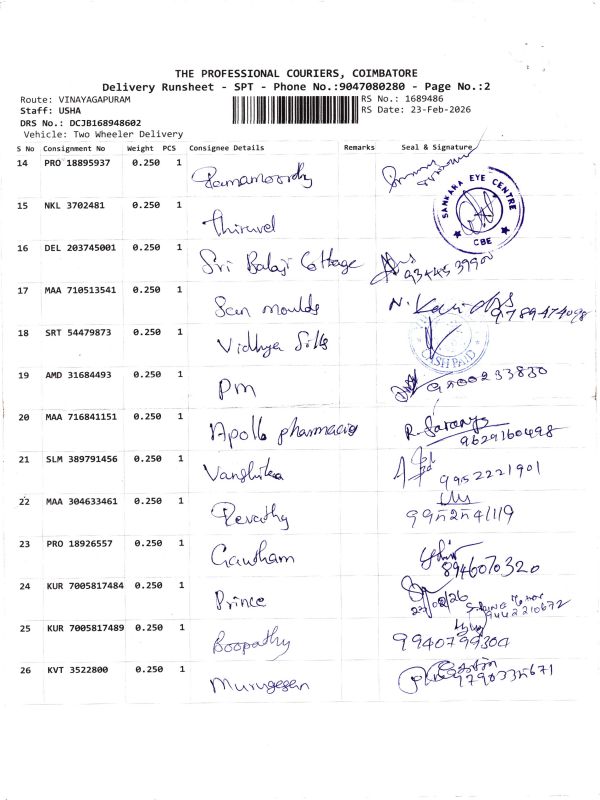 THE PROFESSIONAL COURIERS, COIMBATORE
Delivery Runsheet - SPT - Phone No.:9047080280 - Page No.:2
Route: VINAYAGAPURAM
Staff: USHA
DRS No.: DCJB168948602
Vehicle: Two Wheeler Delivery
RS No.: 1689486
RS Date: 23-Feb-2026
S No Consignment No Weight PCS Consignee Details Remarks Seal & Signature
14 PRO 18895937 0.250 1 Ramamoorthy
SANKARA EYE CENTRE
CBE
15 NKL 3702481 0.250 1 Thiruvel
16 DEL 203745001 0.250 1 Sri Balaji Cottage
17 MAA 710513541 0.250 1 San moulds 9789474098
18 SRT 54479873 0.250 1 Vidhya Silks CASH PAID
19 AMD 31684493 0.250 1 PM
20 MAA 716841151 0.250 1 Apollo pharmacies R. Saranya
9629160498
21 SLM 389791456 0.250 1 Vanshika 9952221901
22 MAA 304633461 0.250 1 Revathy
23 PRO 18926557 0.250 1 Gautham 8946070320
24 KUR 7005817484 0.250 1 Prince 23/02/26 9442210672
25 KUR 7005817489 0.250 1 Boopathy 9940799304
26 KVT 3522800 0.250 1 Murugesan 9790335671